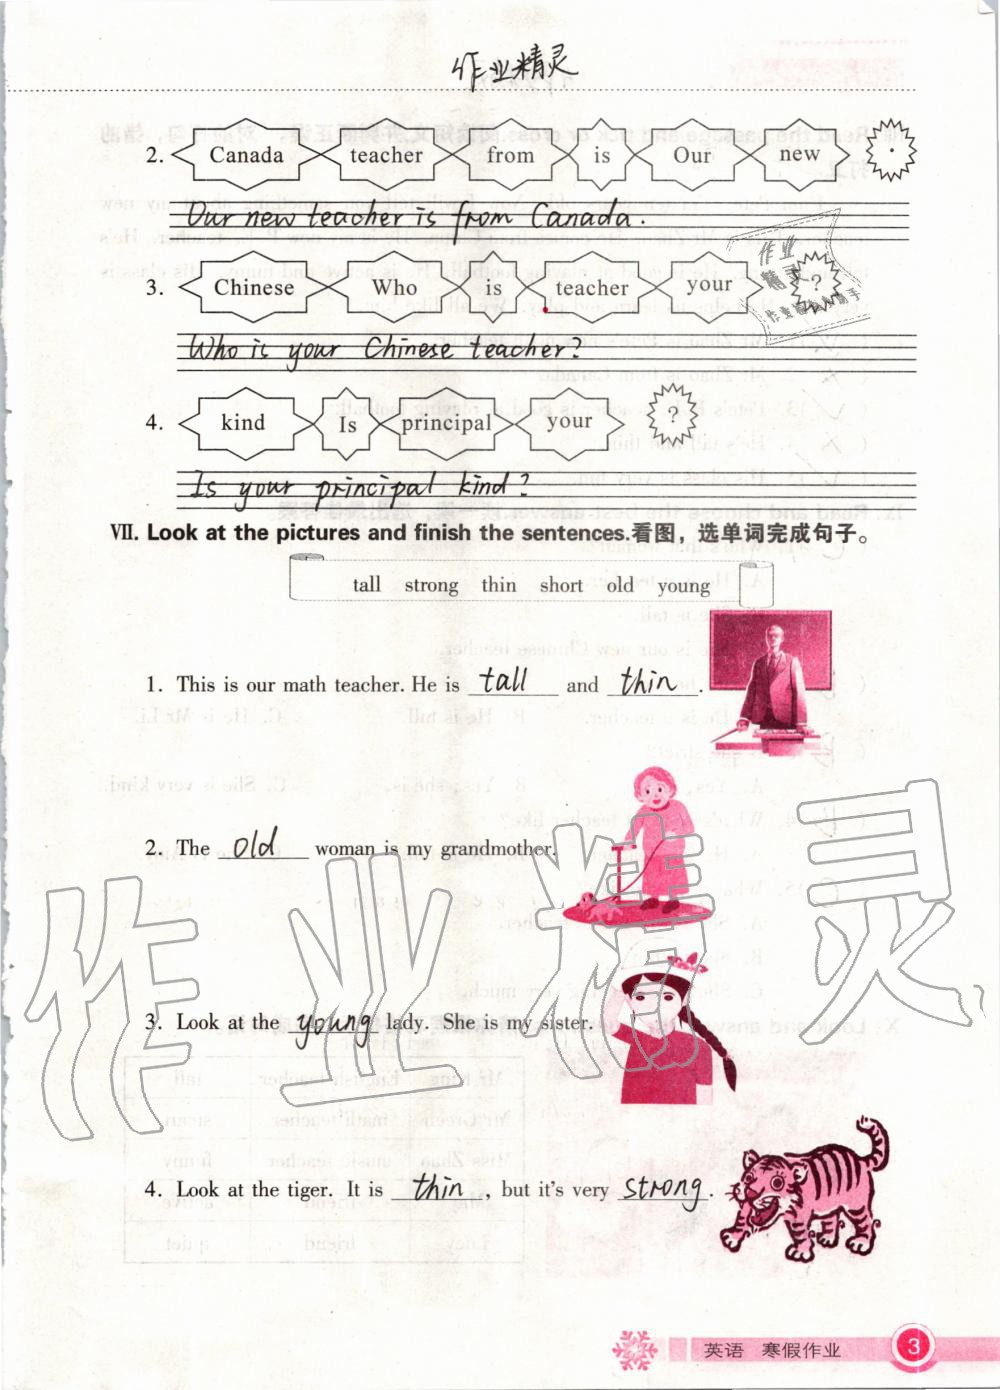 作业精灵
2. Canada teacher from is Our new .
Our new teacher is from Canada.
3. Chinese Who is teacher your ?
作业
精灵
Who is your Chinese teacher?
4. kind Is principal your ?
Is your principal kind?
Ⅶ. Look at the pictures and finish the sentences.看图，选单词完成句子。
tall strong thin short old young
1. This is our math teacher. He is tall and thin.
2. The old woman is my grandmother.
3. Look at the young lady. She is my sister.
4. Look at the tiger. It is thin, but it's very strong.
作业精灵
英语 寒假作业 3